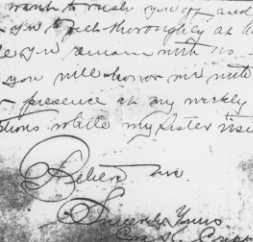 want to rush you off and
you to feel thoroughly at
you remain with us
you will honor me with
presence at my weekly
while my sister is
Believe me
Sincerely Yours